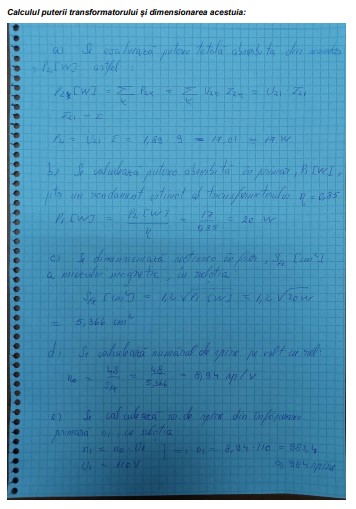 Calculul puterii transformatorului și dimensionarea acestuia:
a) Se calculează putere totală absorbită din
P₂[W] astfel:
P₂[W] = Σ P₂ₖ = Σ U₂ₖ I₂ₖ = U₂₁ · I₂₁
I₂₁ = I
P₂ = U₂₁ · I = 1,89 · 9 = 17,01 ≈ 17 W
b) Se calculează putere absorbită în primar, P₁[W],
ptr un randament estimat al transformatorului η = 0,85
P₁[W] = P₂[W] / η = 17 / 0,85 = 20 W
c) Se dimensionează secțiunea în fier, S_Fe [cm²]
a miezului magnetic, cu relația
S_Fe [cm²] = 1,2 √P₁ [W] = 1,2 √20 W
= 5,366 cm²
d) Se calculează numărul de spire pe volt cu rel:
n₀ = 48 / S_Fe = 48 / 5,366 = 8,94 sp/V
e) Se calculează nr. de spire din înfășurarea
primară n₁, cu relația
n₁ = n₀ · U₁ ] => n₁ = 8,94 · 110 = 983,4
U₁ = 110V ≈ 984 spire